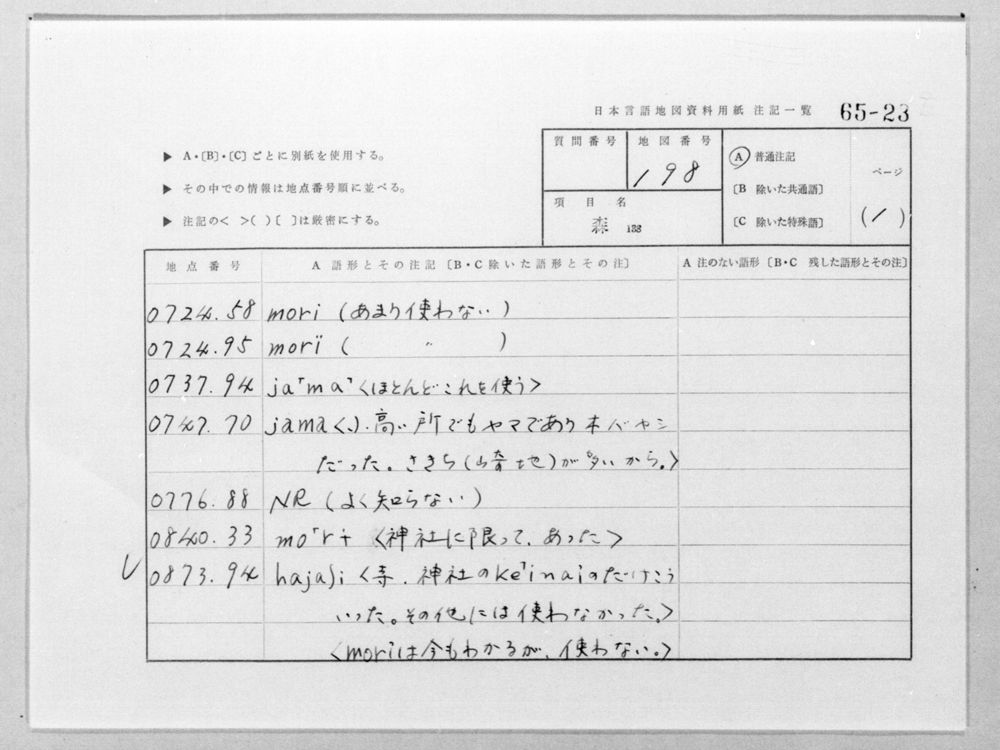 日本言語地図資料用紙 注記一覧 65-23
▶ A・〔B〕・〔C〕ごとに別紙を使用する。
▶ その中での情報は地点番号順に並べる。
▶ 注記の< >( )〔 〕は厳密にする。
質問番号 地図番号
198
項目名
森 133
Ⓐ 普通注記
〔B 除いた共通語〕
〔C 除いた特殊語〕
ページ
(1)
地点番号 A 語形とその注記〔B・C除いた語形とその注〕 A 注のない語形〔B・C 残した語形とその注〕
0724.58 mori (あまり使わない)
0724.95 morï ( 〃 )
0737.94 ja｢ma｣<ほとんどこれを使う>
0747.70 jama<、).高い所でもヤマであり木バヤシ
だった。さきち(崎地)が多いから。>
0776.88 NR (よく知らない)
0840.33 mo｢rɨ <神社に限って、あった>
0873.94 hajaʃi <寺．神社のke｢inaiのだけこう
いった。その他には使わなかった。>
<moriは今もわかるが、使わない。>